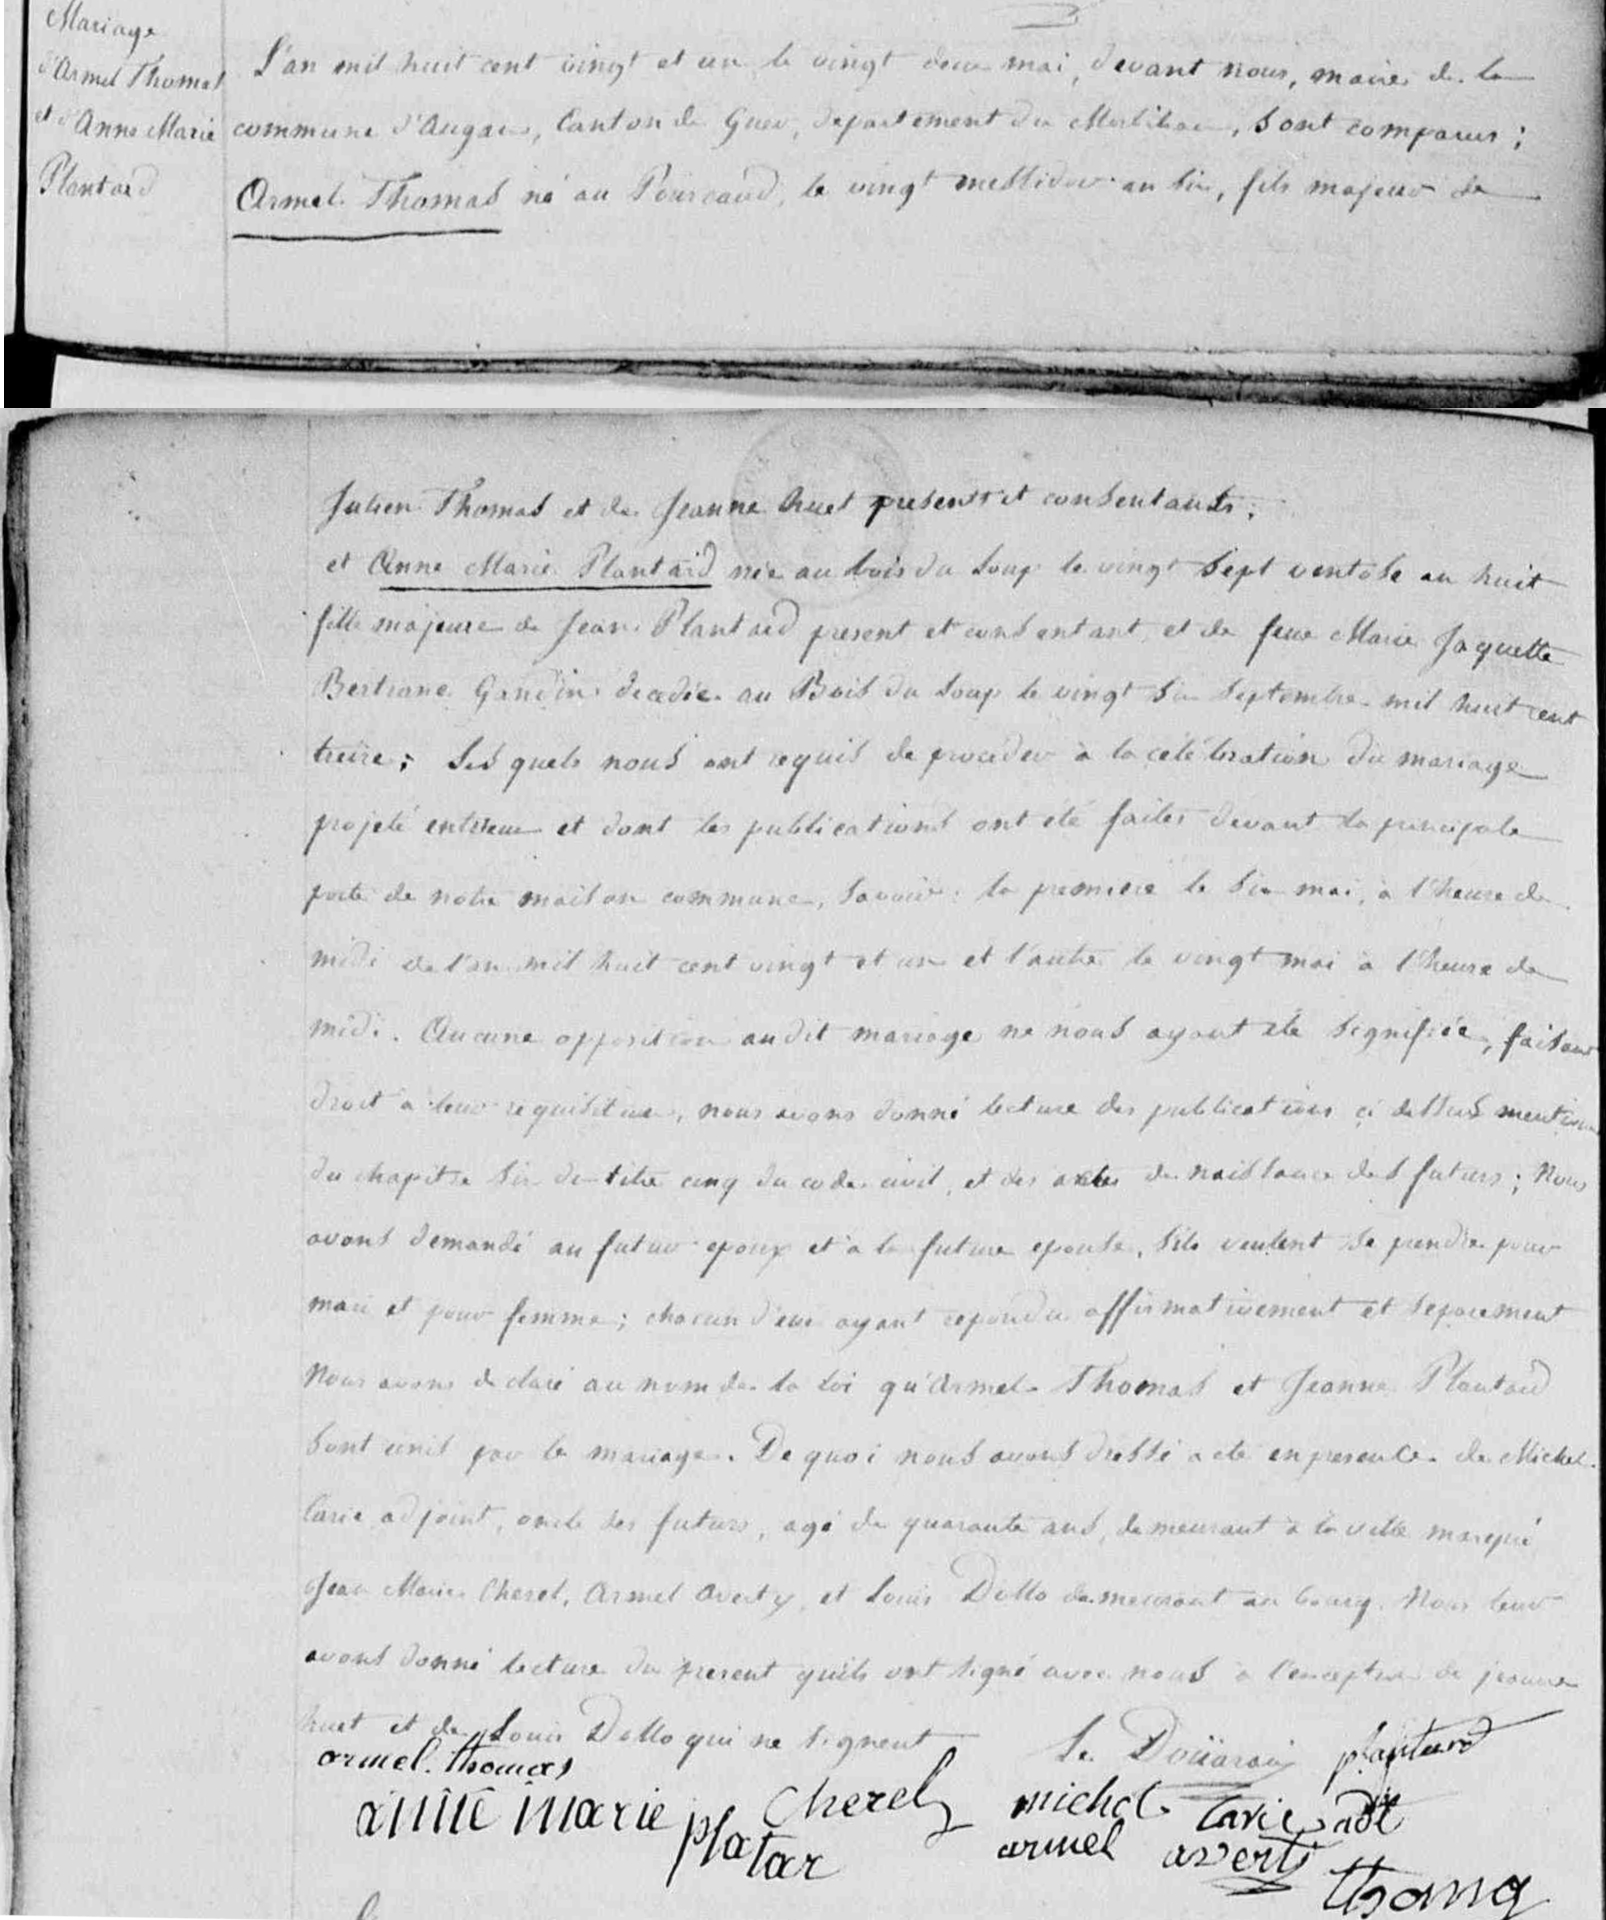 Mariage
d'Armel Thomas
et d'Anne Marie
Plantard
L'an mil huit cent vingt et un le vingt deux mai, devant nous, maire de la
commune d'Augan, Canton de Guer, departement du Morbihan, sont comparus :
Armel Thomas né au Pourcaud, le vingt messidor an six, fils majeur de
Julien Thomas et de Jeanne huet presents et consentants.
et Anne Marie Plantard née au bois du Loup le vingt sept ventose an huit
fille majeure de Jean Plantard present et consentant, et de feue Marie Jaquette
Bertrane Gandin decedée au Bois du Loup le vingt six septembre mil huit cent
treize ; Les quels nous ont requis de proceder à la célébration du mariage
projeté entreeux et dont les publications ont été faites devant la principale
porte de notre maison commune, savoir : la premiere le six mai, à l'heure de
midi de l'an mil huit cent vingt et un et l'autre le vingt mai à l'heure de
midi. Aucune opposition audit mariage ne nous ayant été signifiée, faisant
droit à leur requisition, nous avons donné lecture des publications ci dessus
du chapitre six du titre cinq du code civil, et des actes de naissance des futurs ; Nous
avons demandé au futur epoux et à la future epouse, s'ils veulent se prendre pour
mari et pour femme ; chacun d'eux ayant repondu affirmativement et separement
Nous avons declaré au nom de la loi qu'Armel Thomas et Jeanne Plantard
sont unis par le mariage. De quoi nous avons dressé acte en presence de Michel
Carie adjoint, oncle des futurs, agé de quarante ans, demeurant à la ville
Jean Marie Cherel, Armel Averty, et Louis Dollo demeurant au bourg. Nous leur
avons donné lecture du present qu'ils ont signé avec nous à l'exception de jeanne
huet et de Louis Dollo qui ne signent
armel thomas
Le Doüarain
plantard
anne marie platar
Cherel
michel Carie adt
armel averti
thomas